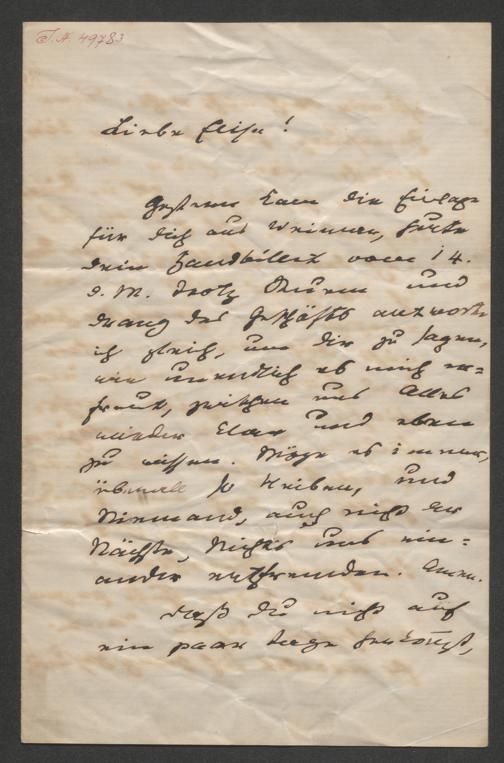 I.N. 49783
Liebe Elise!
Gestern kam die Einlage
für dich aus Weimar, heute
dein Handbillet vom 14.
d. M. Trotz Sturm und
Drang des Geschäfts antworte
ich gleich, um dir zu sagen,
wie unendlich es mich er=
freut, zwischen uns Alles
wieder klar und eben
zu wissen. Möge es immer,
überall so bleiben, und
Niemand, auch nicht der
Nächste, Nichts uns ein=
ander entfremden. Amen.
Daß du nicht auf
ein paar Tage herkommst,